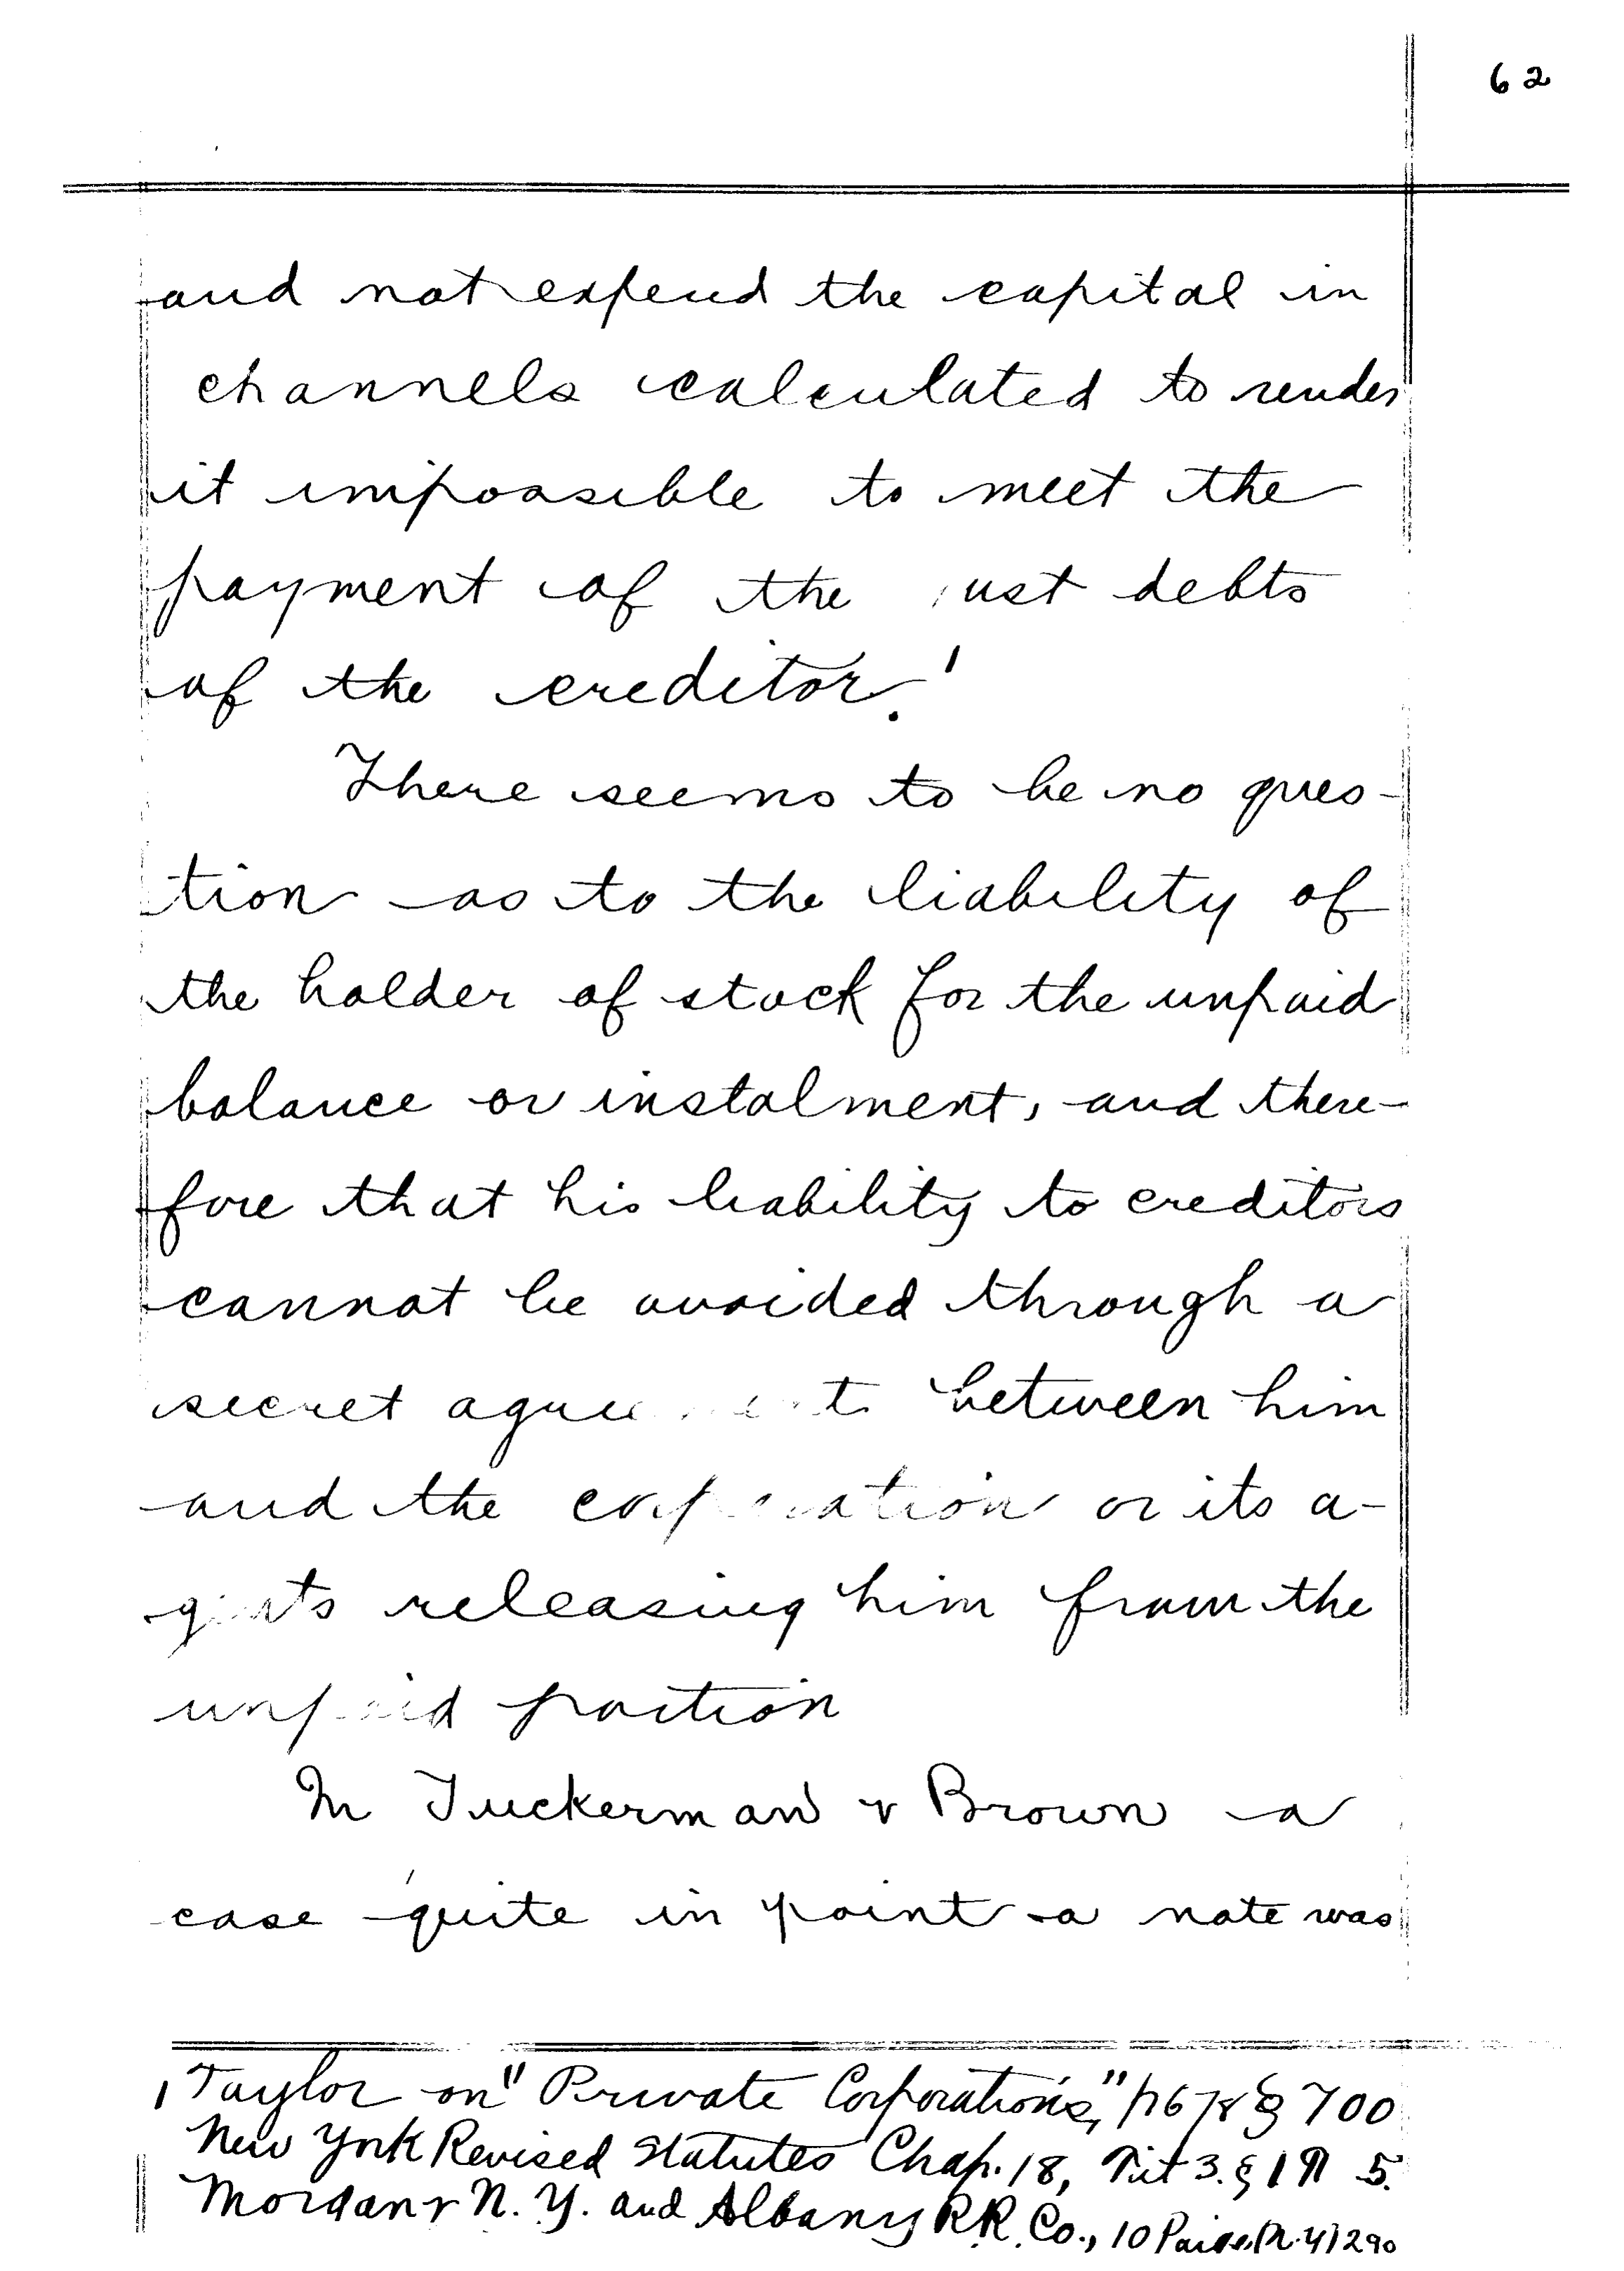 62
and not expend the capital in
channels calculated to render
it impossible to meet the
payment of the just debts
of the creditor.1
There seems to be no ques-
tion as to the liability of
the holder of stock for the unpaid
balance or instalment, and there-
fore that his liability to creditors
cannot be avoided through a
secret agreement between him
and the corporation or its a-
gents releasing him from the
unpaid portion
In Tuckerman v Brown a
case quite in point a note was
1 Taylor on "Private Corporations," p 678 § 700
New York Revised Statutes Chap. 18, Tit 3. § 1 ¶ 5.
Morgan v N. Y. and Albany R.R. Co., 10 Paige (N.Y) 290